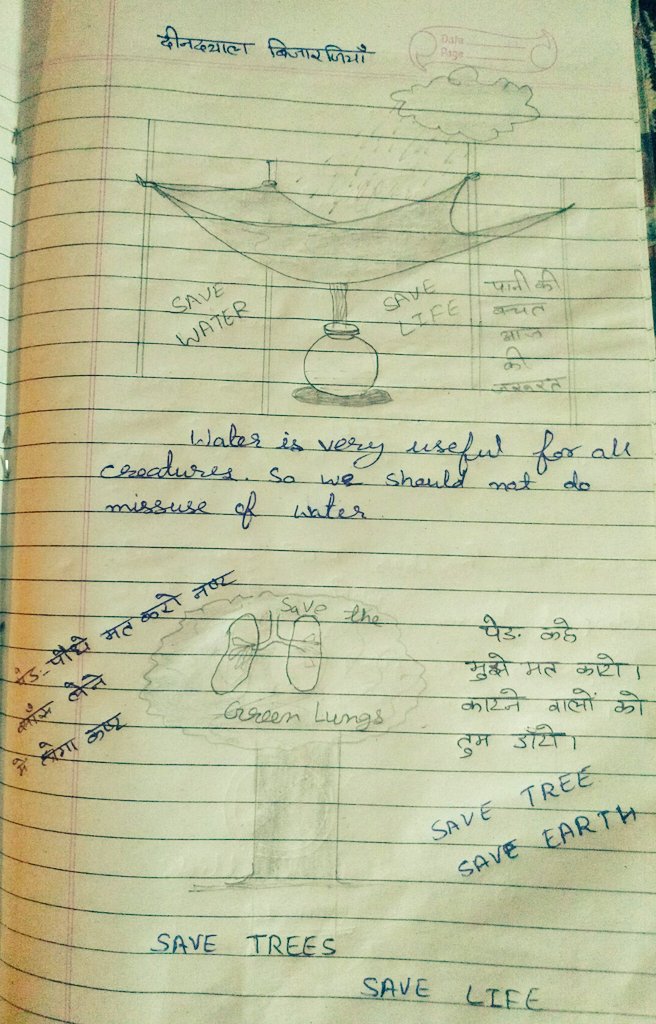 दीनदयाल बिजारणियाँ
Date
Page
SAVE
WATER
SAVE
LIFE
पानी की
बचत
आज
की
जरूरत
Water is very useful for all
creadures. So we should not do
missuse of water
पेड़-पौधे मत करो नष्ट
साँस लेने
में होगा कष्ट
Save the
Green Lungs
पेड़ कहे
मुझे मत काटो।
काटने वालों को
तुम डाँटो।
SAVE TREE
SAVE EARTH
SAVE TREES
SAVE LIFE